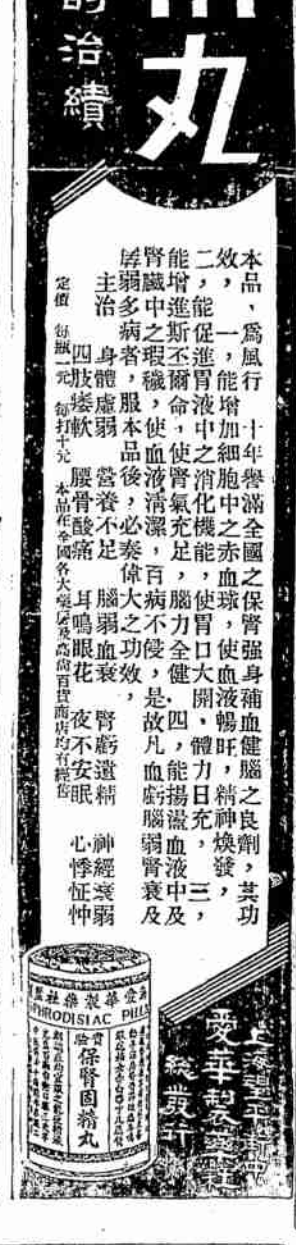 丸
治績
本品、爲風行二十年譽滿全國之保腎強身補血健腦之良劑，其功
效，一，能增加細胞中之赤血球，使血液暢旺，精神煥發，
二，能促進胃液中之消化機能，使胃口大開、體力日充，三，
能增進斯丕爾命，使腎氣充足，腦力全健．四，能揚濫血液中及
腎臟中之瑕穢，使血液淸潔，百病不侵，是故凡血虧腦弱腎衰及
孱弱多病者，服本品後，必奏偉大之功效，
主治 身體虛弱 營養不足 腦弱血衰 腎虧遺精 神經衰弱
四肢痿軟 腰骨酸痛 耳鳴眼花 夜不安眠 心悸怔忡
定價 每瓶一元 每打十元 本品在全國各大藥房及高尚百貨商店均有經售
愛華製藥社
APHRODISIAC PILLS
保腎固精丸
上海
愛華製藥社
總發行